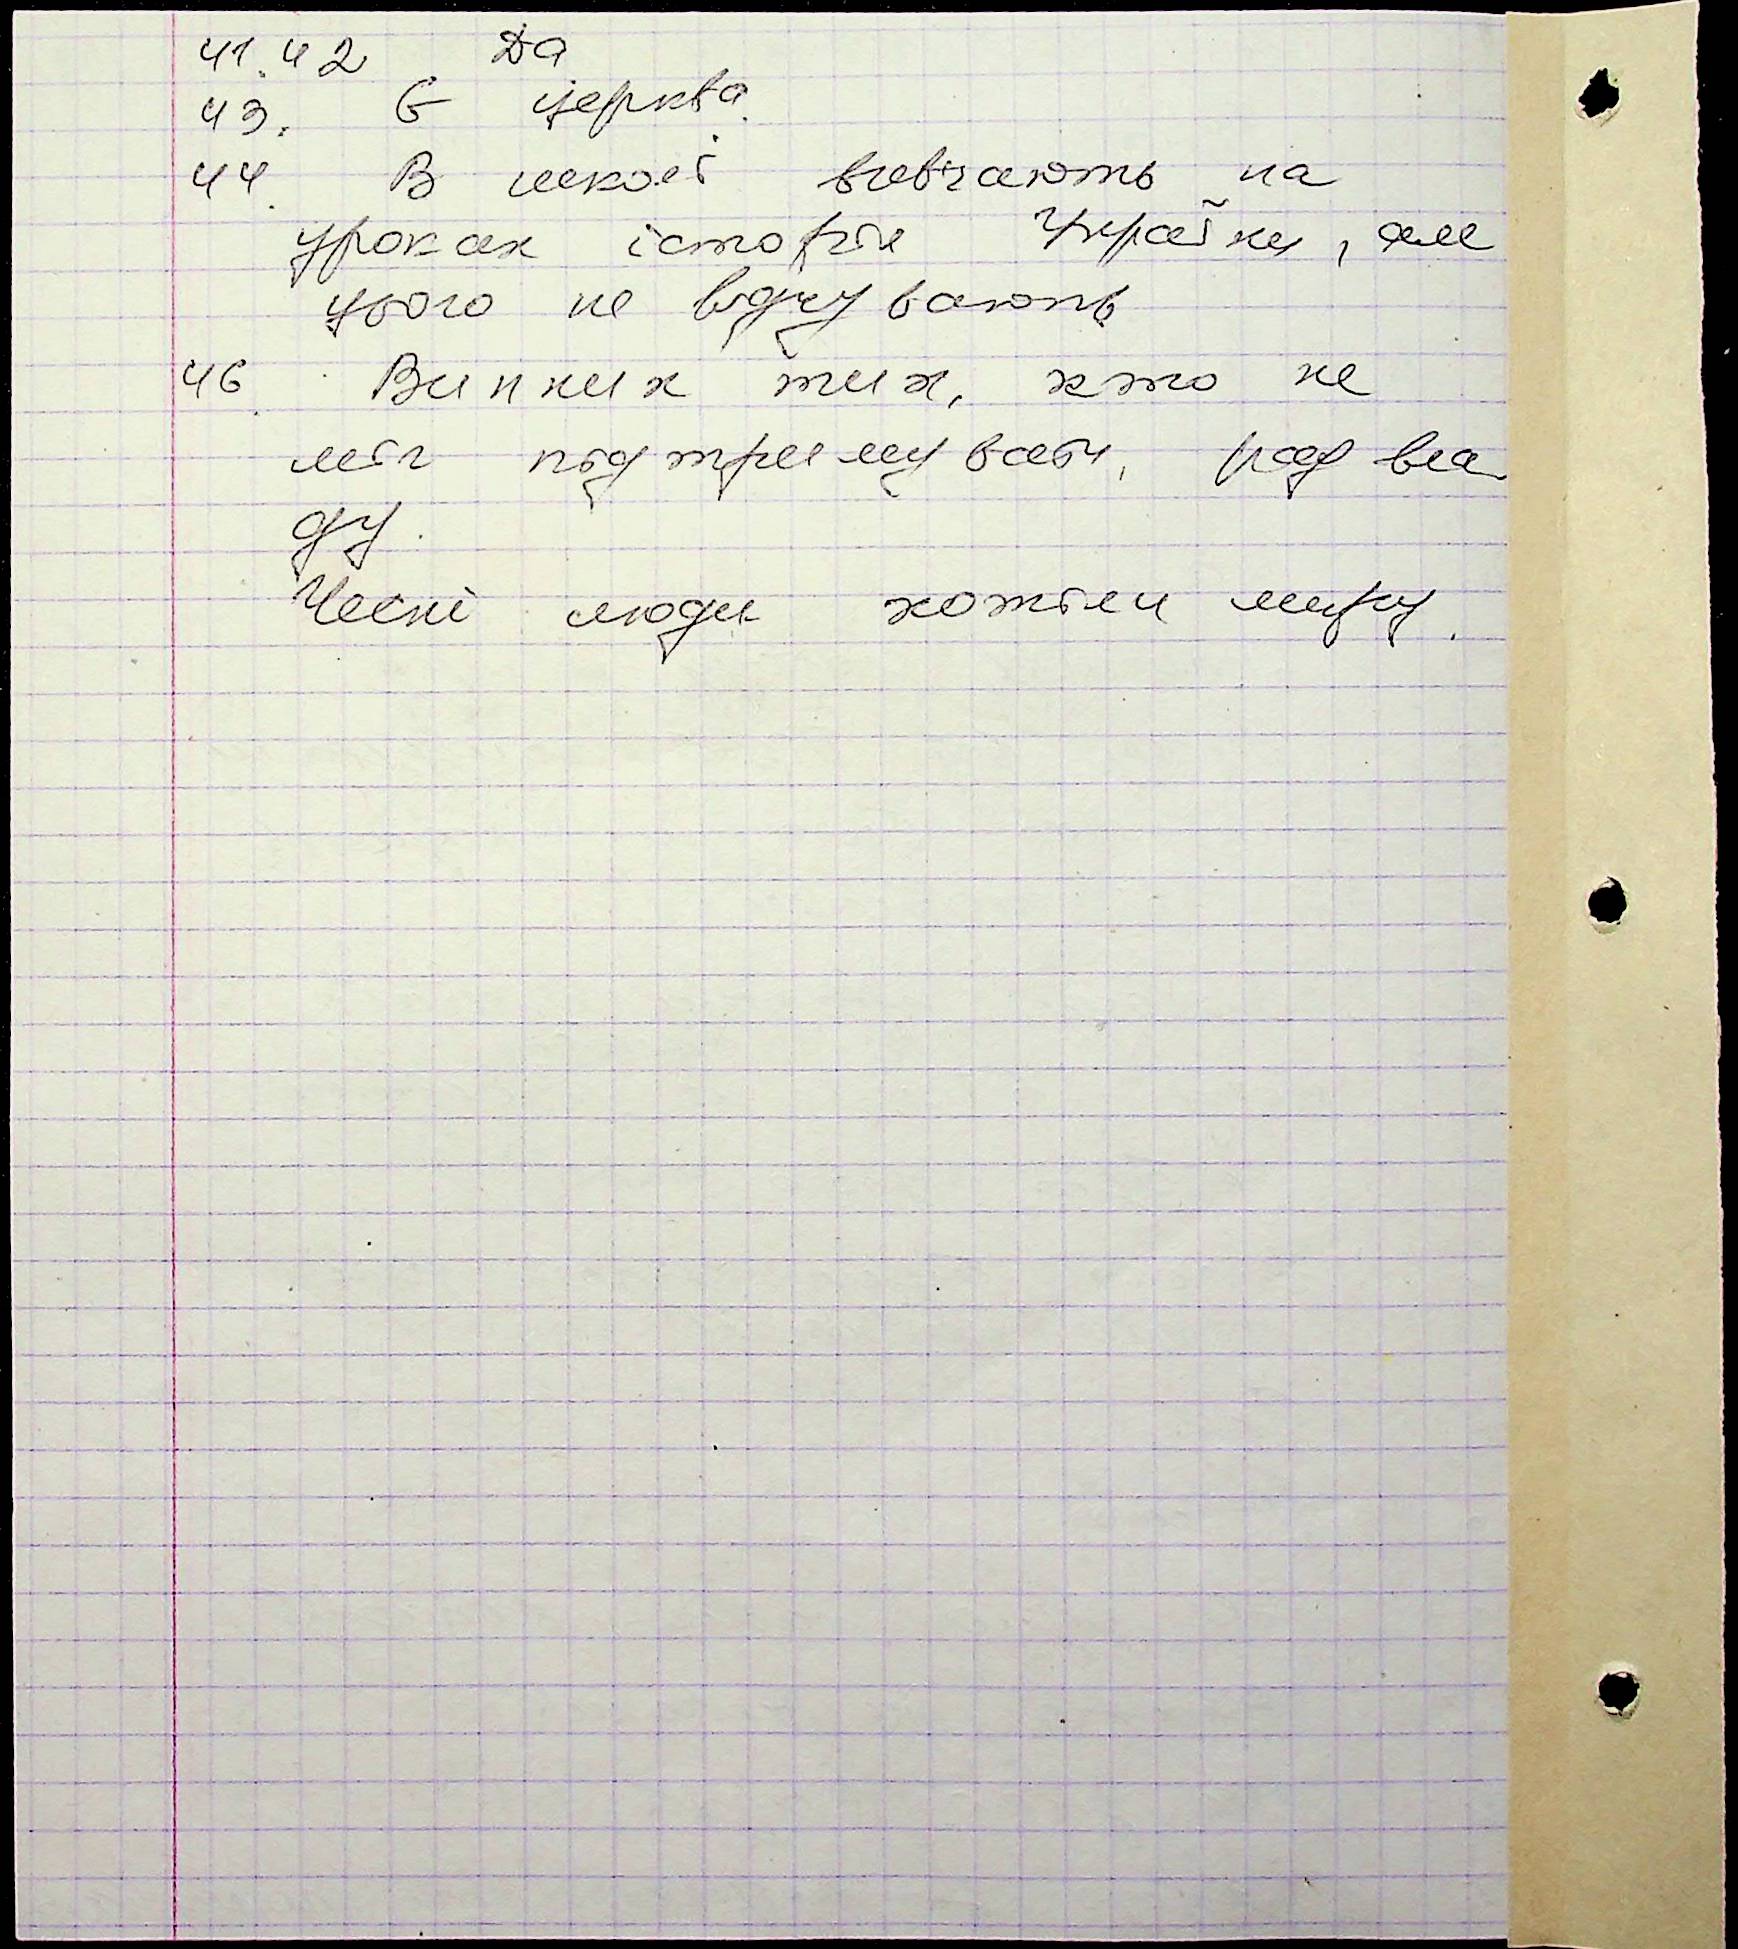 41.42 Да
43. Є церква.
44. В школі вивчають на
уроках історіи Украйни, але
цього не відчувають
46. Винних тих, хто не
міг підтримувати, рад вла
ду.
Чесні люди хотіли миру.